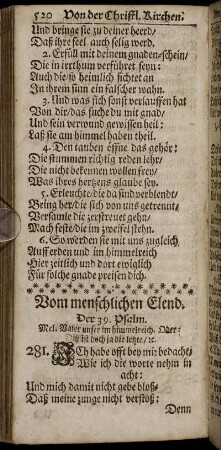 520 Von der Christl. Kirchen.
Und bringe sie zu deiner heerd/
Daß ihre seel auch selig werd.
2. Erfüll mit deinem gnaden-schein/
Die in irrthum verführet seyn:
Auch die/so heimlich fichtet an
In ihrem sinn ein falscher wahn.
3. Und was sich sonst verlauffen hat
Von dir/das suche du mit gnad/
Und sein verwund gewissen heil:
Laß sie am himmel haben theil.
4. Den tauben öffne das gehör:
Die stummen richtig reden lehr/
Die nicht bekennen wollen frey/
Was ihres hertzens glaube sey.
5. Erleuchte/die da sind verblendt/
Bring her/die sich von uns getrennt/
Versamle die zerstreuet gehn/
Mach feste/die im zweifel stehn.
6. So werden sie mit uns zugleich
Auff erden und im himmelreich
Hier zeitlich und dort ewiglich
Für solche gnade preisen dich.
Vom menschlichen Elend.
Der 39. Psalm.
Mel. Vater unser im himmelreich. Oder:
ist doch ja die letzte/ ꝛc.
281. Ich habe offt bey mir bedacht/
Wie ich die worte nehm in
acht:
Und mich damit nicht gebe bloß/
Daß meine zunge nicht verstoß:
Denn